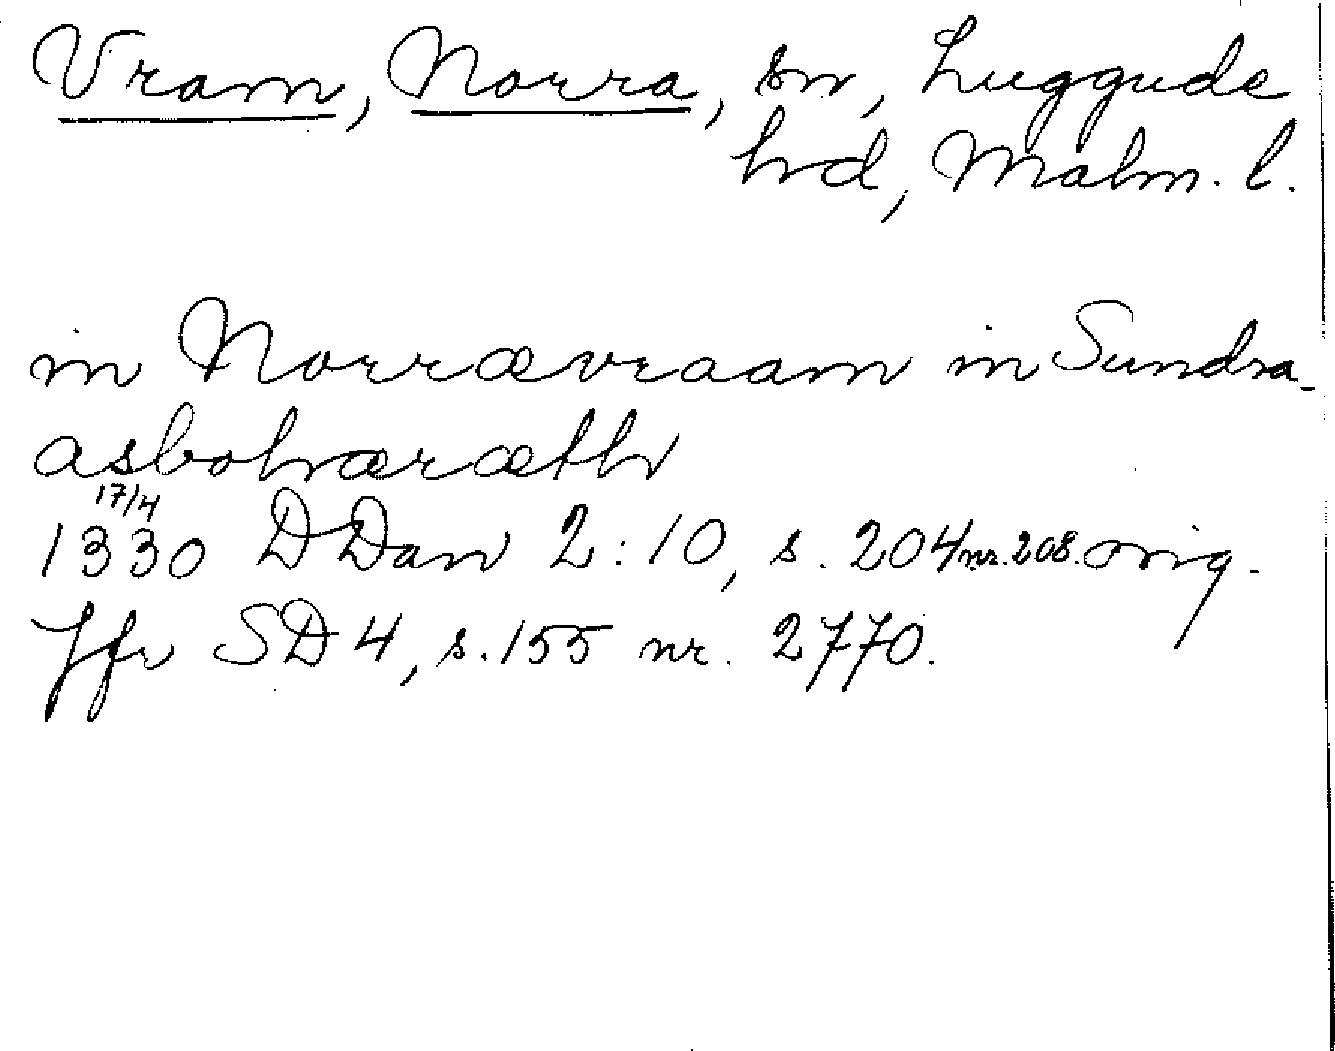 Vram, Norra, sn, Luggude
hd, Malm. l.
in Norrævraam in Sundra-
asbohæræth
17/4
1330 DDan 2:10, s. 204 nr. 208. orig.
Jfr SD 4, s. 155 nr. 2770.